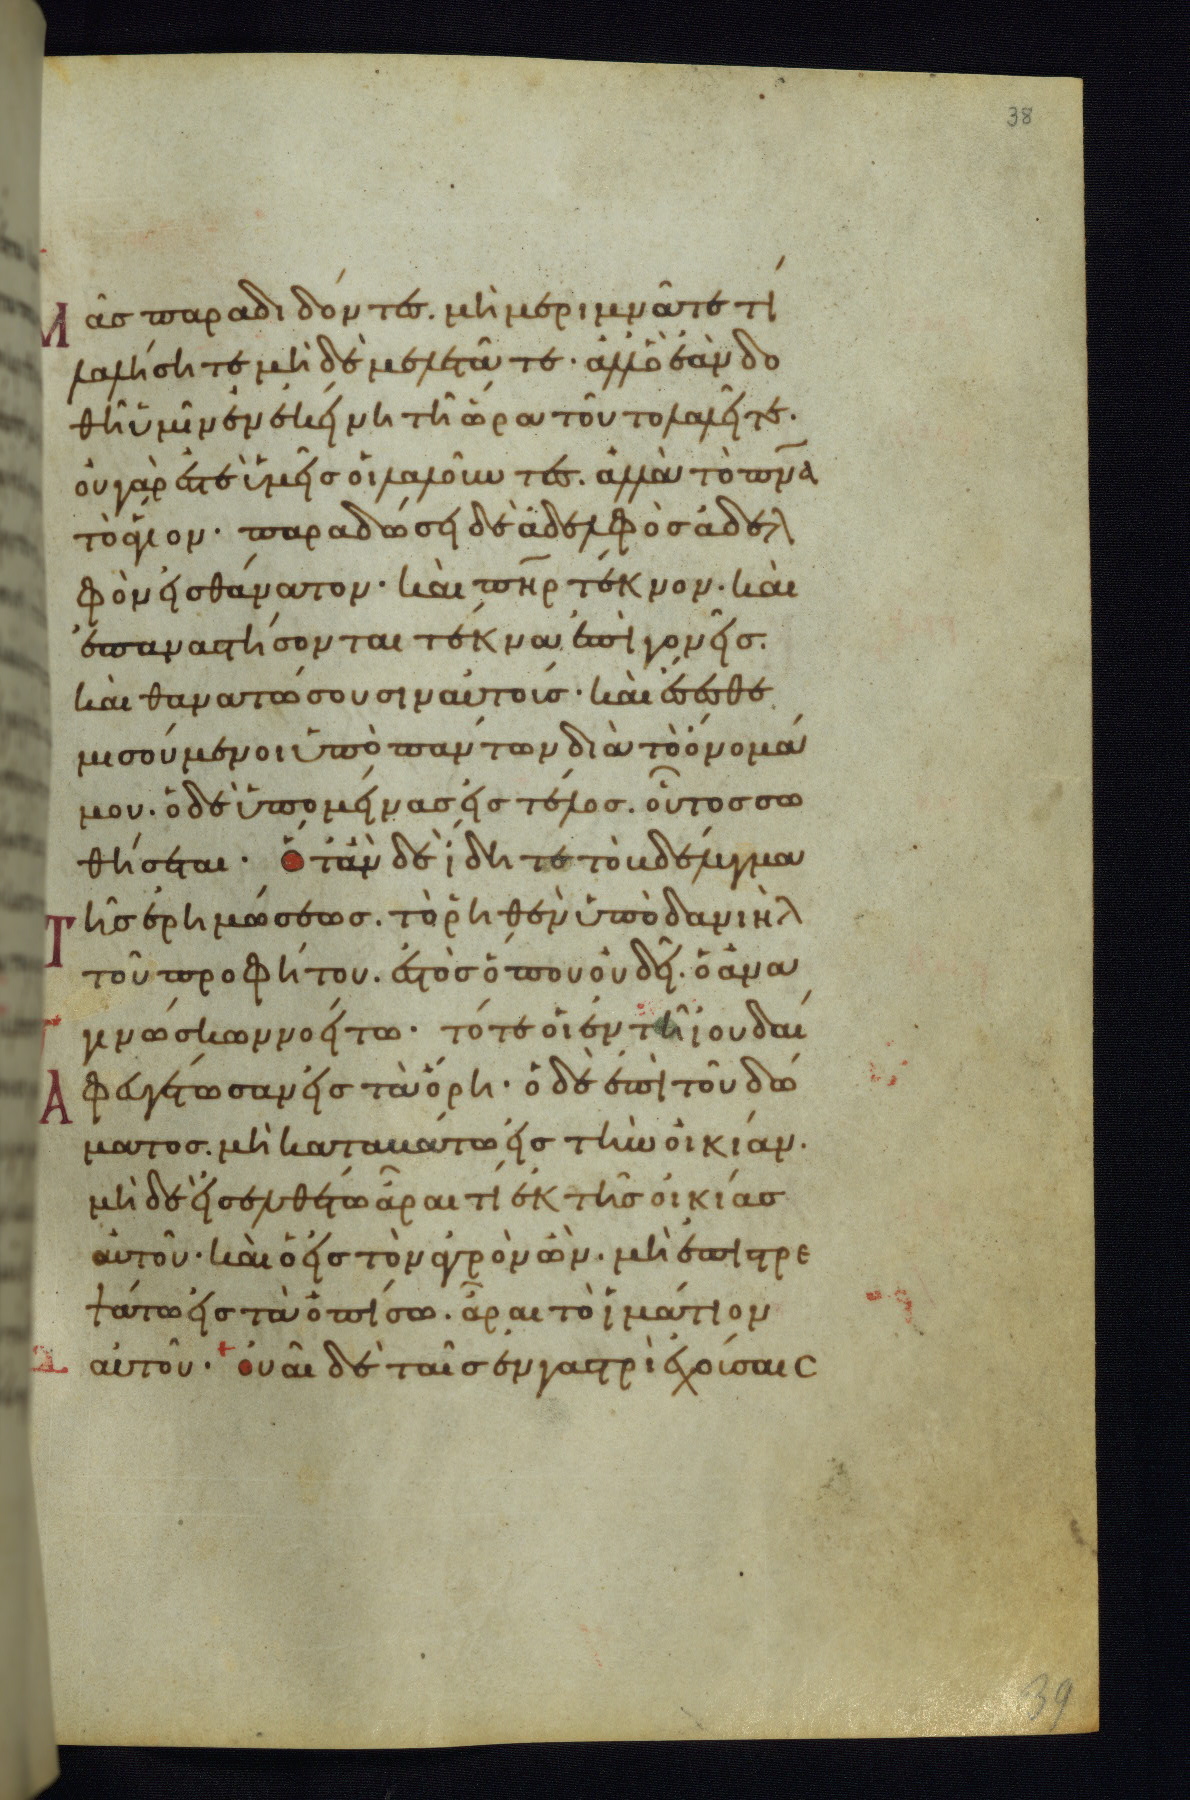 38
Μᾶσ παραδιδόντεσ. μὴ μεριμνᾶτε τί
λαλήσητε μὴ δὲ μελετᾶτε· ἀλλ' ὃ ἐὰν δο
θῆ ὑμῖν ἐν ἐκείνη τῆ ὥρα τοῦτο λαλεῖτε.
οὐ γάρ ἐστὲ ὑμεῖσ οἱ λαλοῦντεσ. ἀλλὰ τὸ πν̅α
τὸ ἅγιον· παραδώσει δὲ ἀδελφὸσ ἀδελ
φὸν εἰσ θάνατον· καὶ πη̅ρ τέκνον· καὶ
ἐπαναστήσονται τέκνα ἐπὶ γονεῖσ.
καὶ θανατώσουσιν αὐτούσ· καὶ ἔσεσθε
μισούμενοι ὑπὸ πάντων διὰ τὸ ὄνομά
μου. ὁ δὲ ὑπομείνασ εἰσ τέλοσ. οὗτοσ σω
θήσεται· Ὅταν δὲ ἴδητε τὸ βδέλυγμα
Τῆσ ἐρημώσεωσ. τὸ ῥηθὲν ὑπὸ δανιὴλ
τοῦ προφήτου. ἑστὸσ ὅπου οὐ δεῖ. ὁ ἀνα
γινώσκων νοείτω· τότε οἱ ἐν τῆ ἰουδαί
Α φευγέτωσαν εἰσ τὰ ὄρη· ὁ δὲ ἐπὶ τοῦ δώ
ματοσ. μὴ καταβάτω εἰσ τὴν οἰκίαν.
μὴ δὲ εἰσελθέτω ἆραι τί ἐκ τῆσ οἰκίασ
αὐτοῦ· καὶ ὁ εἰσ τὸν ἀγρὸν ὢν. μὴ ἐπιστρε
ψάτω εἰσ τὰ ὀπίσω. ἆραι τὸ ἱμάτιον
αὐτοῦ· οὐαὶ δὲ ταῖσ ἐν γαστρὶ ἐχούσαισ
39